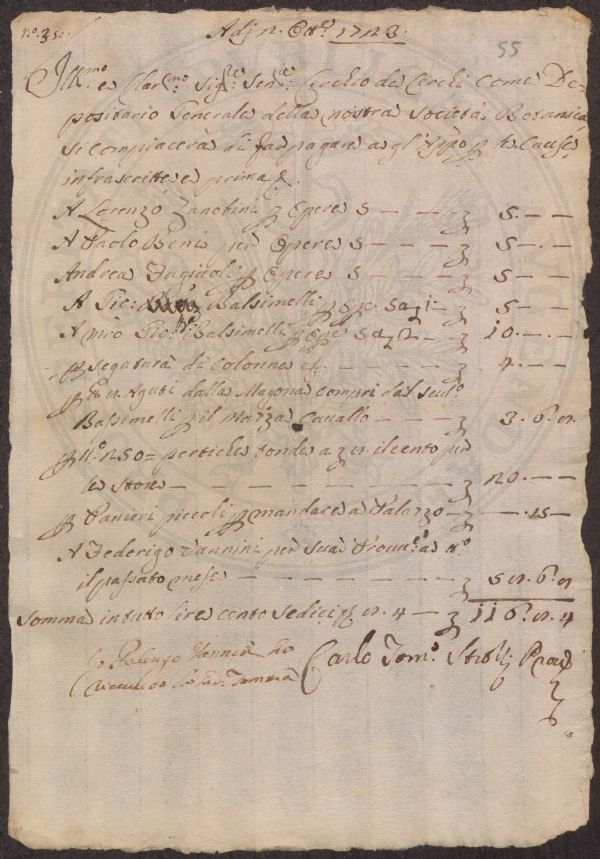 n.º 35.
Adj 12. Ott.e 1723.
55
Ill.mo e Clar.mo Sig.re Sen.re Cerchio de Cerchi come De=
positario Generale della nostra Società Botanica
si compiacerà di far pagare a gl'App.o p le Cause
infrascritte e prima p.
A Lorenzo Zanobini p Opere 5 — — — 5. — —
A Paolo Beni per Opere 5 — — — 5. — —
Andrea Fagiuoli p Opere 5 — — — 5 — —
A Gio: Balsimelli p Ope 5 a — 5 — —
A mro Gio: Balsimelli p Ope 5 a 2 — 10. — —
p segatura di Colonne — — — 4. — —
p Aguti dalla Magona compri dal sud.o
Balsimelli p il Mazza Cavallo — — 3. 6. 8
p N.o 250 = pertiche tonde a il cento per
le stoie — — — 20. — —
p Panieri piccoli p mandare a Palazzo — — 15 —
A Federigo Vannini per sua
il passato mese — — —
Somma in tutto lire cento sedici — 116.
Io Vannini ho
ricevuto la sud.a somma
Carlo Tom.o Strozzi Prov.e